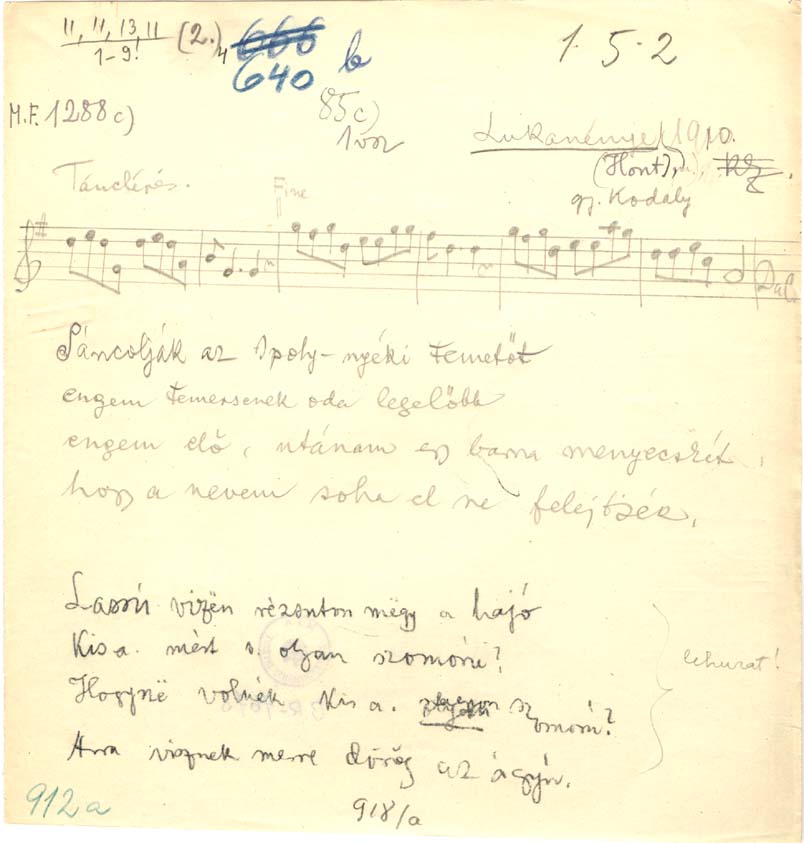 11, 11, 13, 11 (2.) 4 666 b 1 . 5 . 2
1-9! 640
M.F. 1288 c) 85 c)
1 vsz Lukanénye, 1910.
(Hont),
Tánclépés. Fine gy. Kodály
Sáncolják az Ipoly-nyéki temetőt
engem temessenek oda legelőbb
engem elő, utánam egy barna menyecskét,
hogy a nevem soha el ne felejtsék.
Lassú vizën rézsuton mëgy a hajó
Kis a. mért v. olyan szomorú?
Hogynë volnék kis a. szomorú?
Arra visznek merre dörög az ágyú.
lehuzat!
912 a 918/a